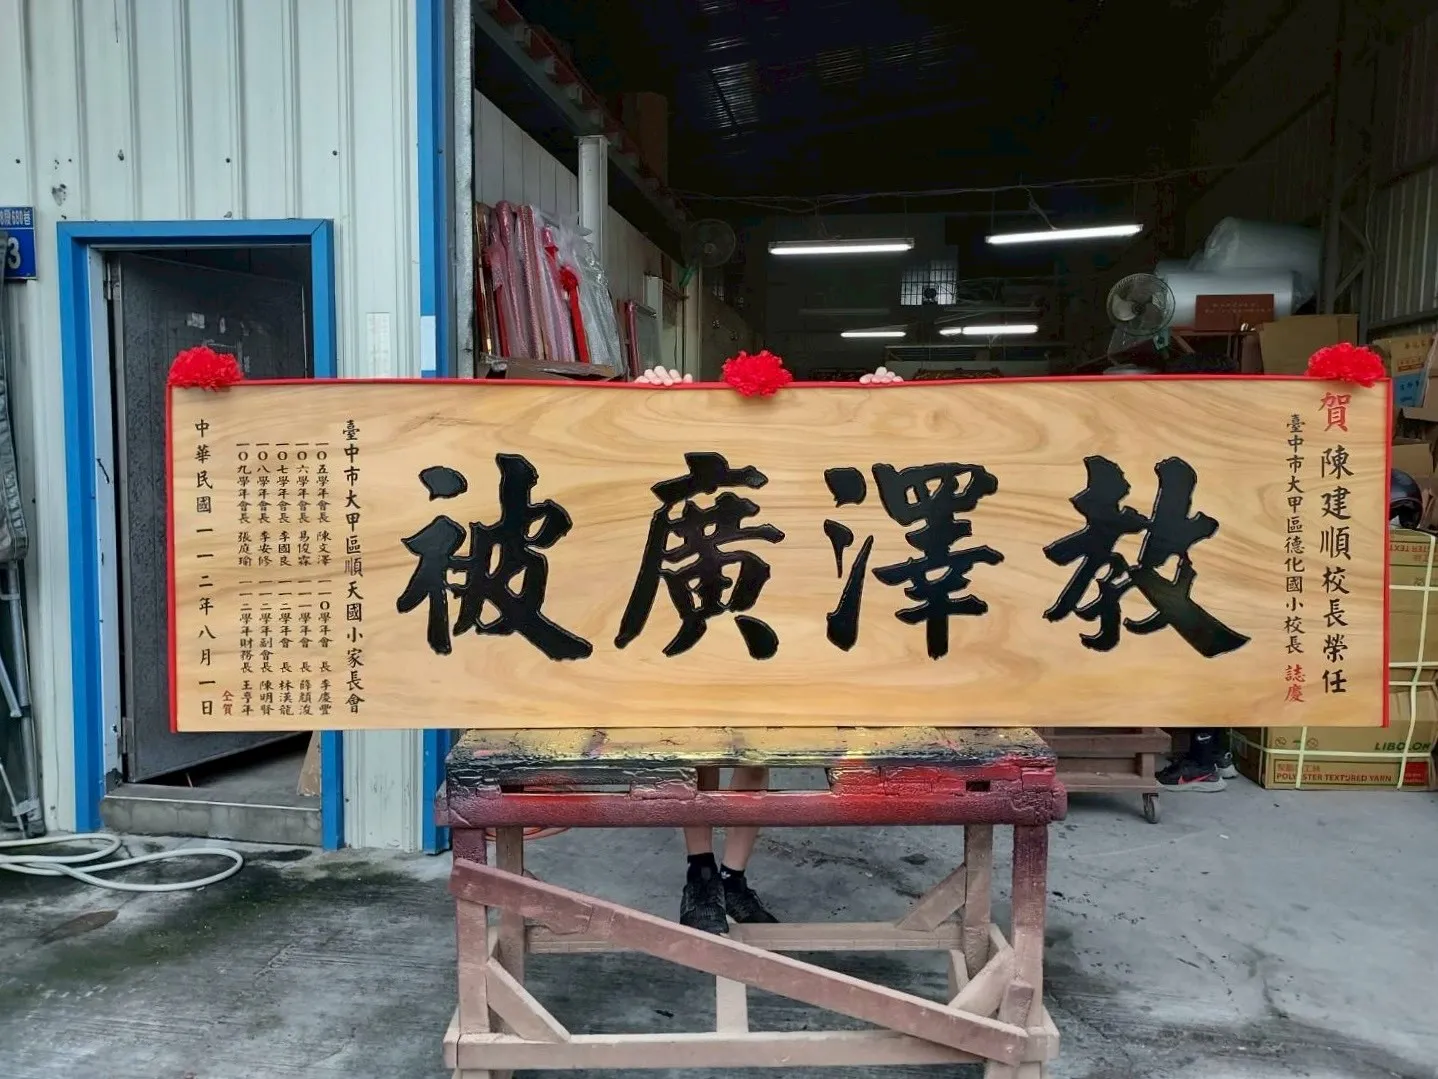 賀 陳建順校長榮任
臺中市大甲區德化國小校長 誌慶
教澤廣被
臺中市大甲區順天國小家長會
一〇五學年會長 陳文澤 一一〇學年會 長 李慶豐
一〇六學年會長 易俊霖 一一一學年會 長 薛顏浚
一〇七學年會長 李國良 一一二學年會 長 林漢龍
一〇八學年會長 李安修 一一二學年副會長 陳明賢
一〇九學年會長 張庭瑜 一一二學年財務長 王亭年
仝賀
中華民國一一二年八月一日
680巷
3
LIBOLON
POLYESTER TEXTURED YARN